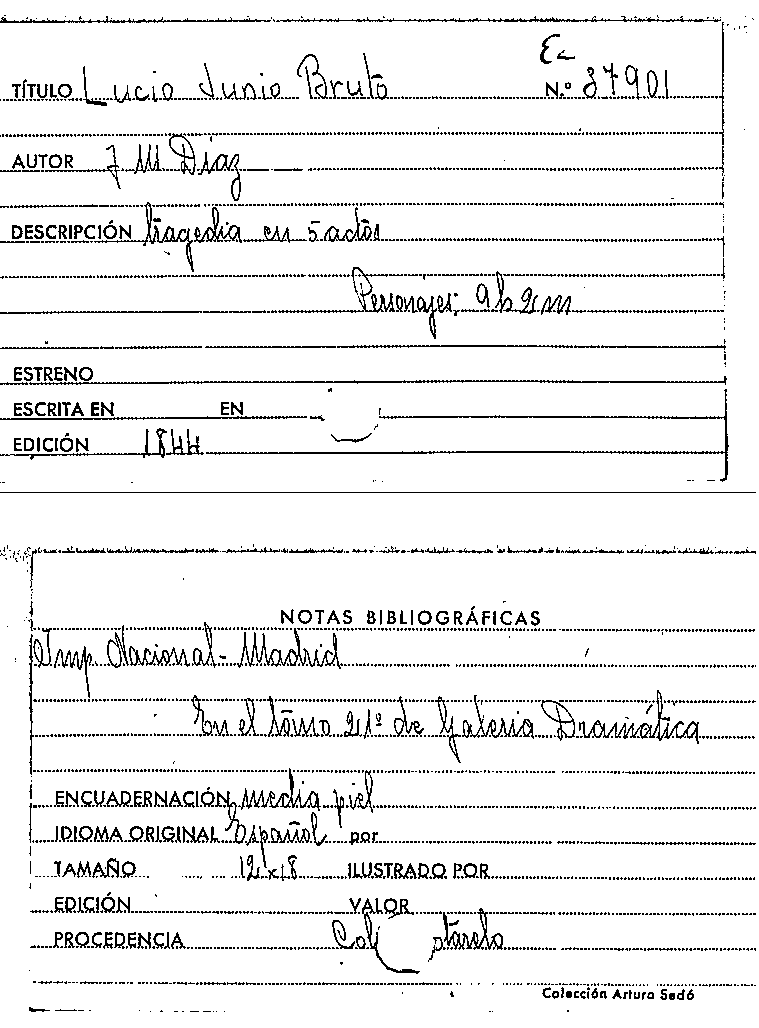 Ea
TÍTULO Lucio Junio Bruto N.º 37901
AUTOR J M Díaz
DESCRIPCIÓN tragedia en 5 actos
Personajes; 9 h 2 m
ESTRENO
ESCRITA EN EN
EDICIÓN 1844
NOTAS BIBLIOGRÁFICAS
Imp. Nacional - Madrid
En el tomo 21º de Galeria Dramática
ENCUADERNACIÓN media piel
IDIOMA ORIGINAL Español por
TAMAÑO 12 x 18 ILUSTRADO POR
EDICIÓN VALOR
PROCEDENCIA Col otarelo
Colección Arturo Sedó